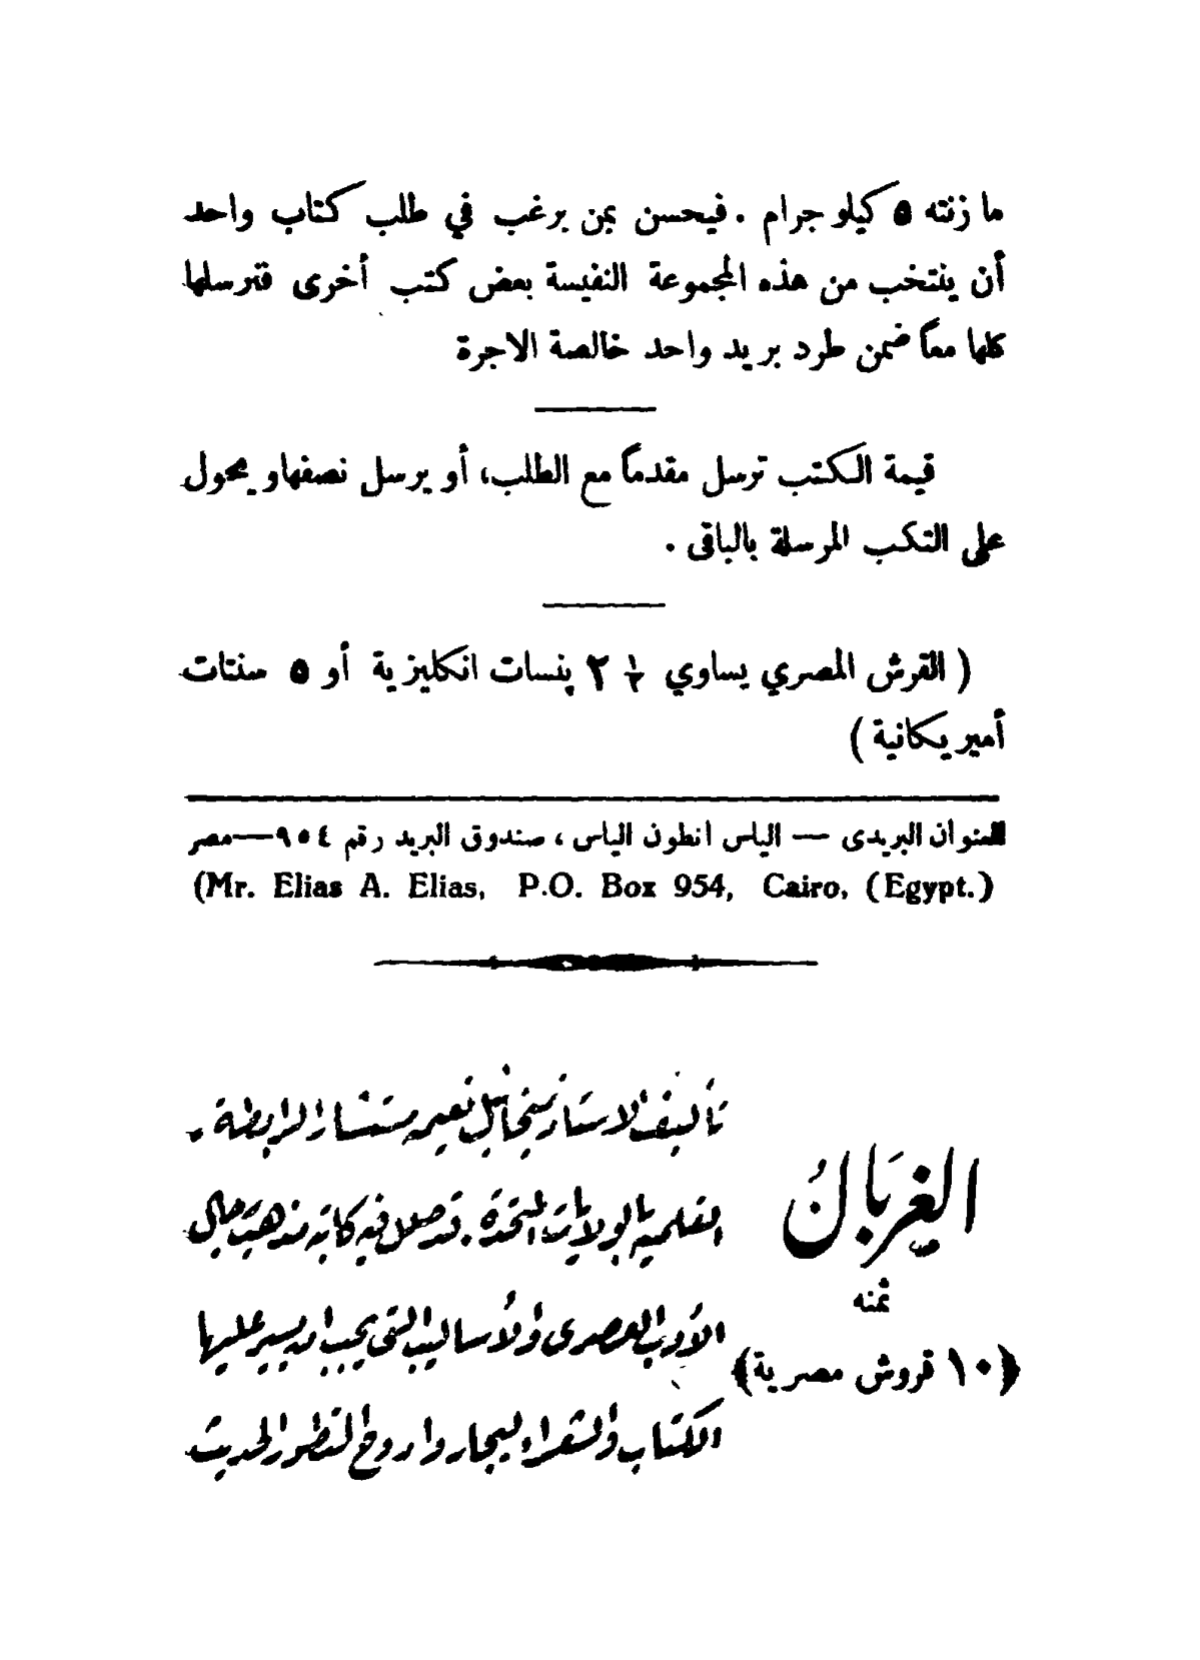 ما زنته ٥ كيلو جرام . فيحسن بمن يرغب في طلب كتاب واحد
أن ينتخب من هذه المجموعة النفيسة بعض كتب أخرى فنرسلها
كلها معاً ضمن طرد بريد واحد خالصة الاجرة
قيمة الكتب ترسل مقدماً مع الطلب، أو يرسل نصفها ويحول
على التكب المرسلة بالباقى .
( القرش المصري يساوي ½ ٢ پنسات انكليزية أو ٥ سنتات
أميريكانية )
العنوان البريدى — الياس انطون الياس ، صندوق البريد رقم ٩٥٤—مصر
(Mr. Elias A. Elias, P.O. Box 954, Cairo, (Egypt.)
الغربالُ
ثمنه
﴿١٠ قروش مصرية﴾
تأليف الاستاذ ميخائيل نعيمه مستشار الرابطة
القلمية بالولايات المتحدة . فيه
الأدب العصرى والأساليب التى يجب ان يسير عليها
الكتاب والشعراء ليجاروا روح التطور الحديث